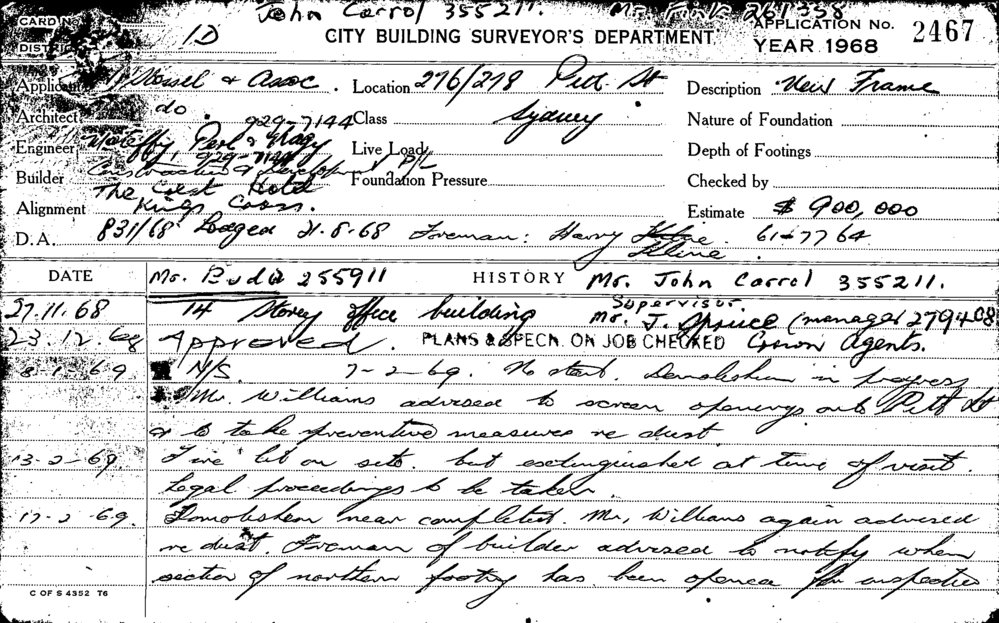 John Carrol 355211. Mr. Fink 261358
CARD No.
DISTRICT
1D
CITY BUILDING SURVEYOR'S DEPARTMENT
APPLICATION No. 2467
YEAR 1968
Applicant & Assoc. Location 276/278 Pitt St Description New Frame
Architect do. 929-7144 Class Sydney Nature of Foundation
Engineer Perl & Nagy 929-7144 Live Load Depth of Footings
Builder Construction & P/L Foundation Pressure Checked by
The Crest Hotel
Alignment Kings Cross. Estimate $ 900,000
D.A. 831/68 Lodged 21-8-68 Foreman: Harry Kline. 61-7764
DATE Mr. Buda 255911 HISTORY Mr. John Carrol 355211.
Supervisor
27.11.68 14 Storey office building Mr. J. (manager 279408
23.12.68 Approved. PLANS & SPECN. ON JOB CHECKED Crown Agents.
8-1-69 N/S. 7-2-69. No start. Demolishen in progress
Mr. Williams advised to screen openings onto Pitt St
& to take preventive measures re dust
13-2-69 Fire lit on site. but extinguished at time of visit.
Legal proceedings to be taken.
17-2-69. Demolishen near completed. Mr. Williams again advised
re dust. Foreman of builder advised to notify when
section of northern footing has been opened for inspection
C OF S 4352 T6